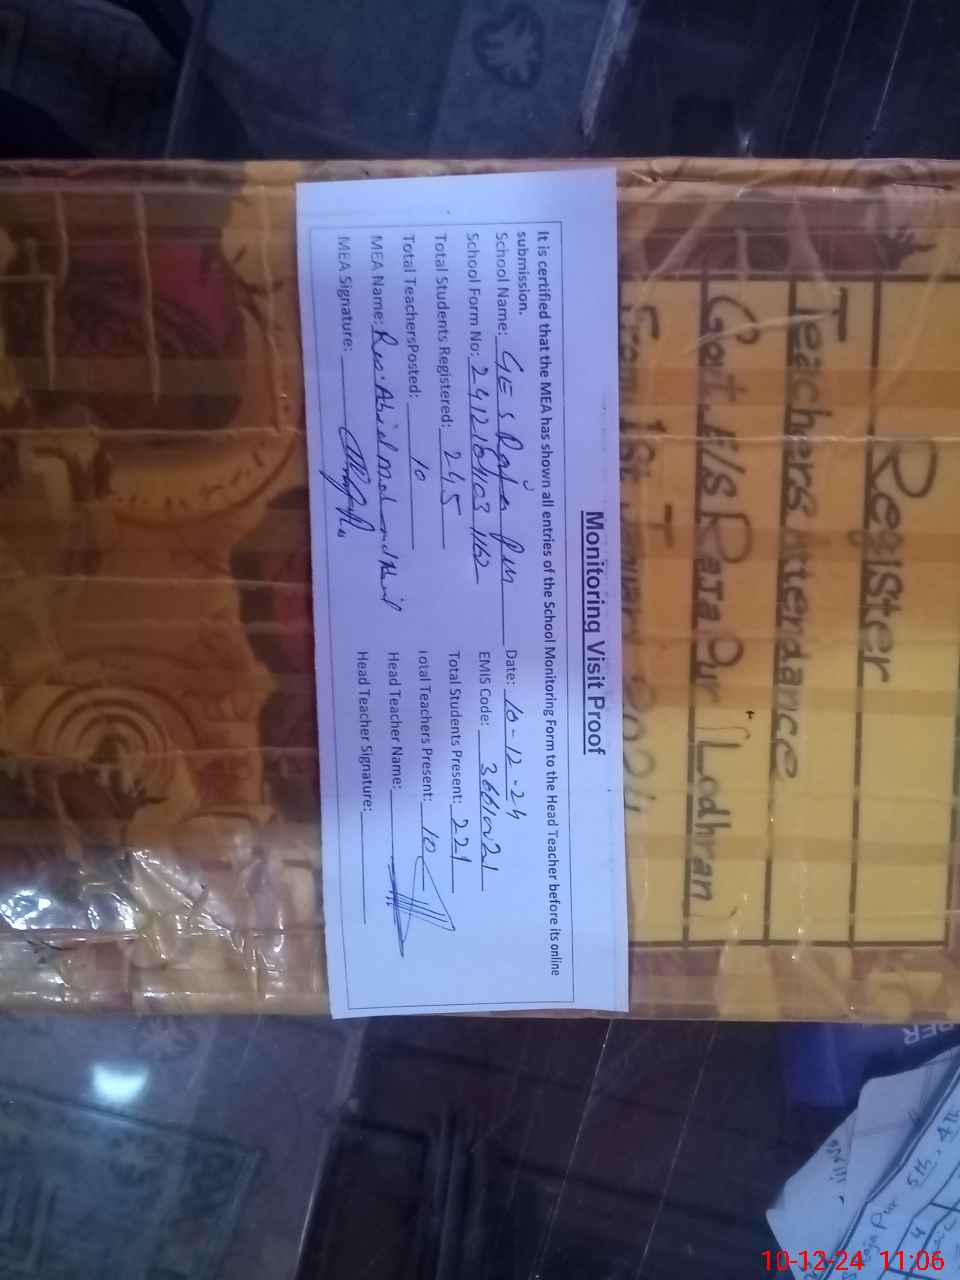 Register
Teachers Attendance
Govt. E/S Raja Pur (Lodhran)
From 1st
Monitoring Visit Proof
It is certified that the MEA has shown all entries of the School Monitoring Form to the Head Teacher before its online
submission.
School Name: GES Raja Pur Date: 10-12-24
School Form No: EMIS Code:
Total Students Registered: 245 Total Students Present: 221
Total TeachersPosted: 10 Total Teachers Present: 10
MEA Name: Head Teacher Name:
MEA Signature: Head Teacher Signature:
5th
10-12-24 11:06